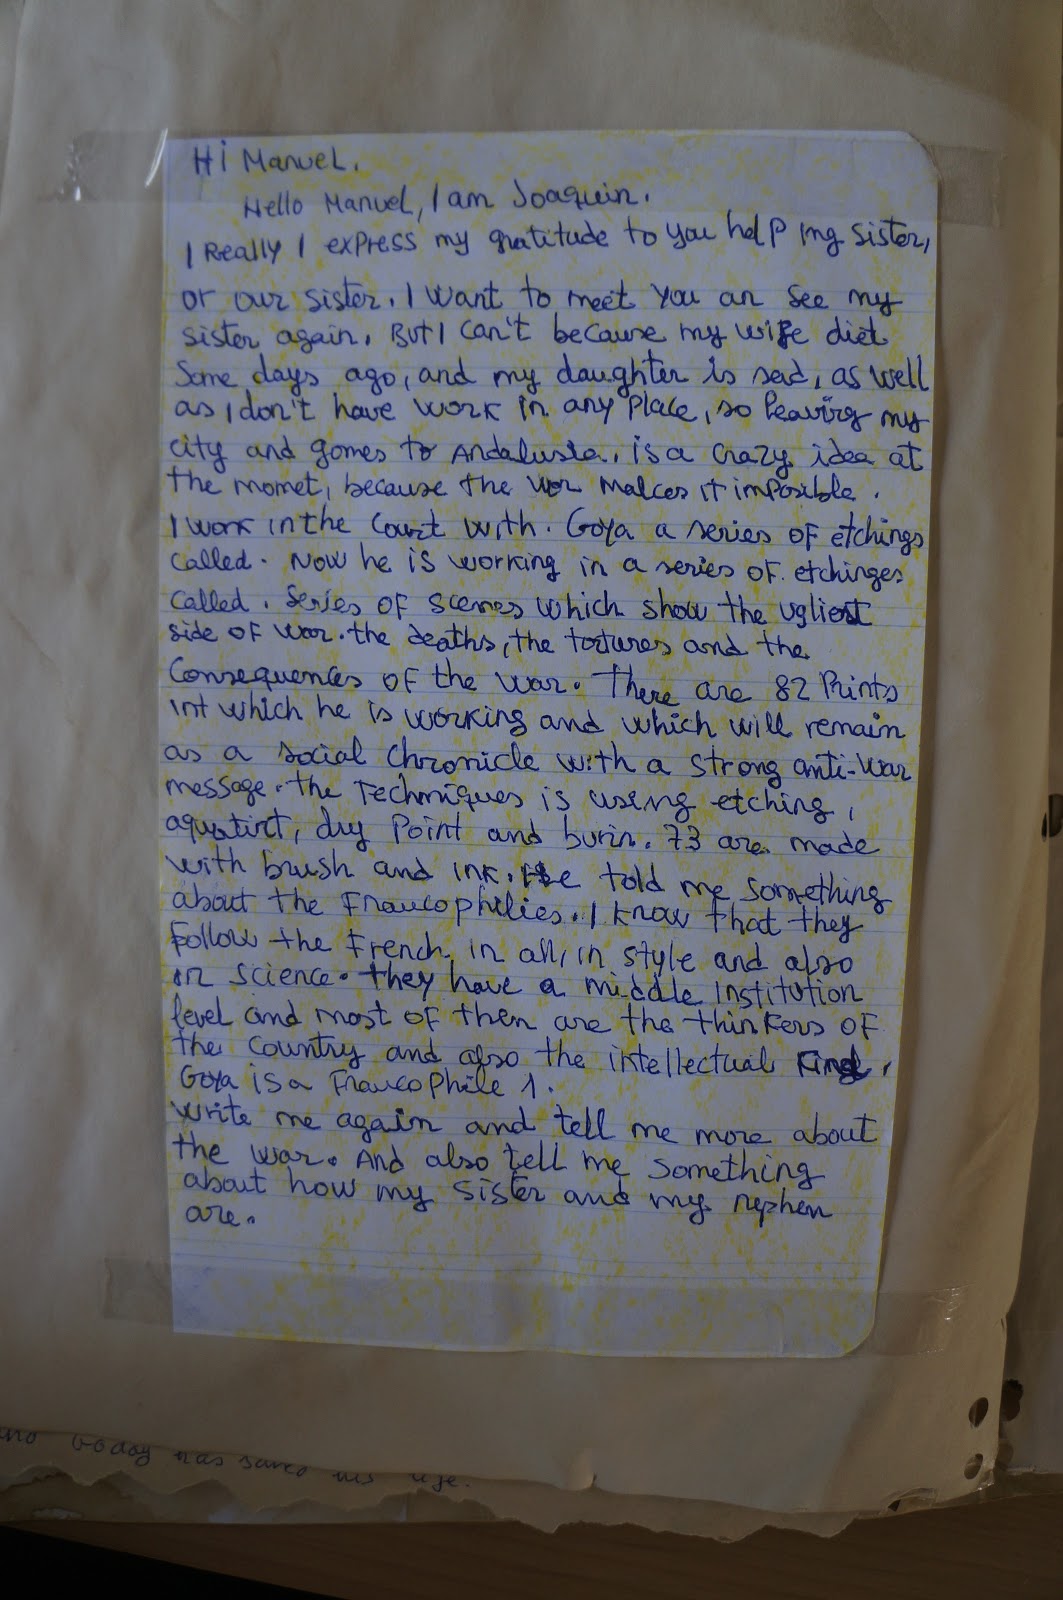 Hi Manuel.
Hello Manuel, I am Joaquin.
I Really I express my gratitude to you help ing sister,
or our sister. I want to meet you an see my
sister again. But I can't because my wife diet
Some days ago, and my daughter is sad, as well
as I don't have work in any place, so leaving my
city and gomes to Andalusia. is a crazy idea at
the momet, because the wor makes it imposible.
I work in the Court with. Goya a series of etchings
called. Now he is working in a series of etchinges
called. Series of scenes which show the ugliest
side of war. the deaths, the tortures and the
Consequences of the war. There are 82 Prints
int which he is working and which will remain
as a social chronicle with a strong anti-war
message. the Techniques is using etching,
aquatint, dry Point and burin. 73 are made
with brush and ink. He told me something
about the Francophilies. I know that they
follow the French in all, in style and also
in science. they have a middle institution
level and most of them are the thinkers of
the country and also the intellectual Kind.
Goya is a Francophile 1.
Write me again and tell me more about
the war. And also tell me something
about how my sister and my nephen
are.
today has saved his life.